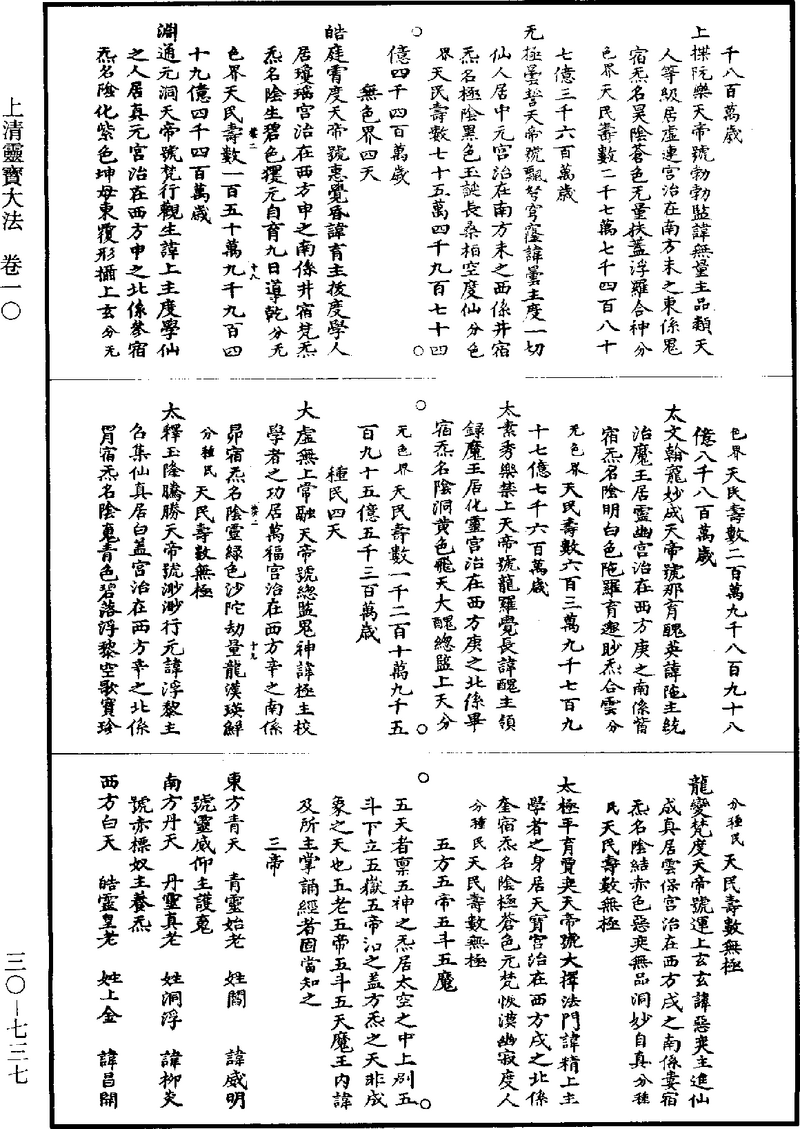 千八百萬歲
上揲阮樂天帝號勃勃監諱無量主品類天
人等級居虛連宮治在南方未之東係鬼
宿炁名昊陰蒼色无量扶蓋浮羅合神分
色界天民壽數二千七萬七千四百八十
七億三千六百萬歲
无極曇誓天帝號飄弩穹窿諱曇主度一切
仙人居中元宮治在南方未之西係井宿
炁名極陰黑色玉誕長桑柏空度仙分色
界天民壽數七十五萬四千九百七十四
億四千四百萬歲
無色界四天
皓庭霄度天帝號惠覺昏諱育主拔度學人
居瓊瑤宮治在西方申之南係井宿梵炁
炁名陰生碧色玃元自育九日導乾分无
色界天民壽數一百五十萬九千九百四
十九億四千四百萬歲
淵通元洞天帝號梵行觀生諱上主度學仙
之人居真元宮治在西方申之北係參宿
炁名陰化紫色坤母東覆形攝上玄分无
色界天民壽數二百萬九千八百九十八
億八千八百萬歲
太文翰寵妙成天帝號那育醜英諱陁主統
治魔王居靈幽宮治在西方庚之南係觜
宿炁名陰明白色陁羅育邈眇炁合雲分
无色界天民壽數六百三萬九千七百九
十七億七千六百萬歲
太素秀樂禁上天帝號龍羅覺長諱醜主領
錄魔王居化靈宮治在西方庚之北係畢
宿炁名陰洞黄色飛天大醜總監上天分
无色界天民壽數一千二百十萬九千五
百九十五億五千三百萬歲
種民四天
大虛無上常融天帝號總監鬼神諱極主校
學者之功居萬福宮治在西方辛之南係
昴宿炁名陰靈綠色沙陀劫量龍漢瑛鮮
分種民天民壽數無極
太釋玉隆騰勝天帝號渺渺行元諱浮黎主
召集仙真居白蓋宮治在西方辛之北係
胃宿炁名陰䰟青色碧落浮黎空歌寶珍
分種民天民壽數無極
龍變梵度天帝號運上玄玄諱惡奕主進仙
成真居雲保宮治在西方戌之南係婁宿
炁名陰結赤色惡奕無品洞妙自真分種
民天民壽數無極
太極平育賈奕天帝號大擇法門諱精上主
學者之身居天寶宮治在西方戌之北係
奎宿炁名陰極蒼色元梵恢漠幽寂度人
分種民天民壽數無極
五方五帝五斗五魔
五天者稟五神之炁居太空之中上列五
斗下立五嶽五帝治之蓋方炁之天非成
象之天也五老五帝五斗五天魔王内諱
及所主掌誦經者固當知之
三帝
東方青天　青靈始老　姓閻　諱威明
號靈威仰主護䰟
南方丹天　丹靈真老　姓洞浮　諱柳炎
號赤標奴主養炁
西方白天　皓靈皇老　姓上金　諱昌開
上清靈寶大法　卷一〇
三〇—七三七